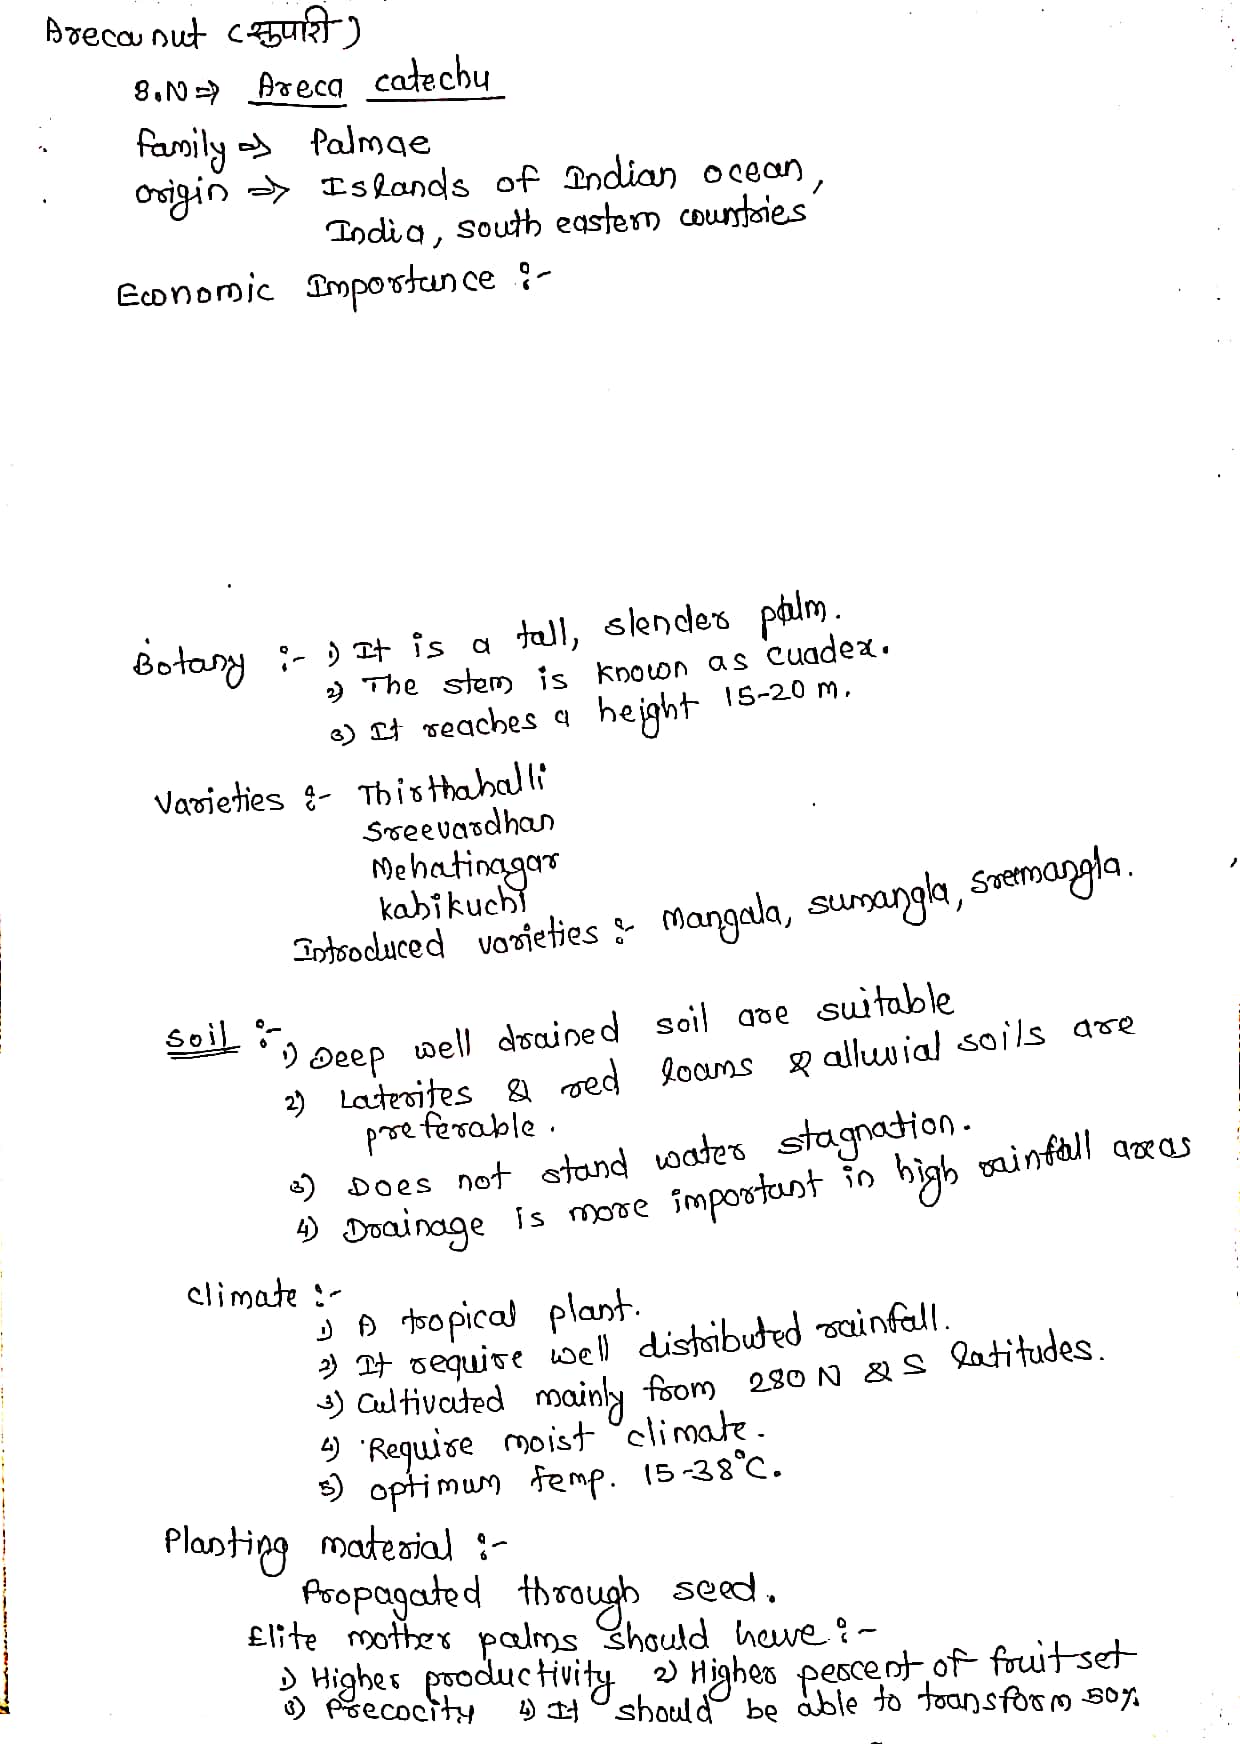 Arecanut (सुपारी)
S.N ⇒ Areca catechu
family ⇒ Palmae
origin ⇒ Islands of Indian ocean,
India, south eastern countries
Economic Importance :-
Botany :- 1) It is a tall, slender palm.
2) The stem is known as cuadex.
3) It reaches a height 15-20 m.
Varieties :- Thirthahalli
Sreevardhan
Mehatinagar
kahikuchi
Introduced varieties :- Mangala, sumangla, Sreemangla.
Soil :-
1) Deep well drained soil are suitable
2) Laterites & red loams & alluvial soils are
preferable.
3) Does not stand water stagnation.
4) Drainage is more important in high rainfall areas
climate :-
1) A tropical plant.
2) It require well distributed rainfall.
3) Cultivated mainly from 280 N & S latitudes.
4) Require moist climate.
5) optimum temp. 15-38°C.
Planting material :-
Propagated through seed.
Elite mother palms should have :-
1) Higher productivity 2) Higher percent of fruit set
3) Precocity 4) It should be able to transform 50%